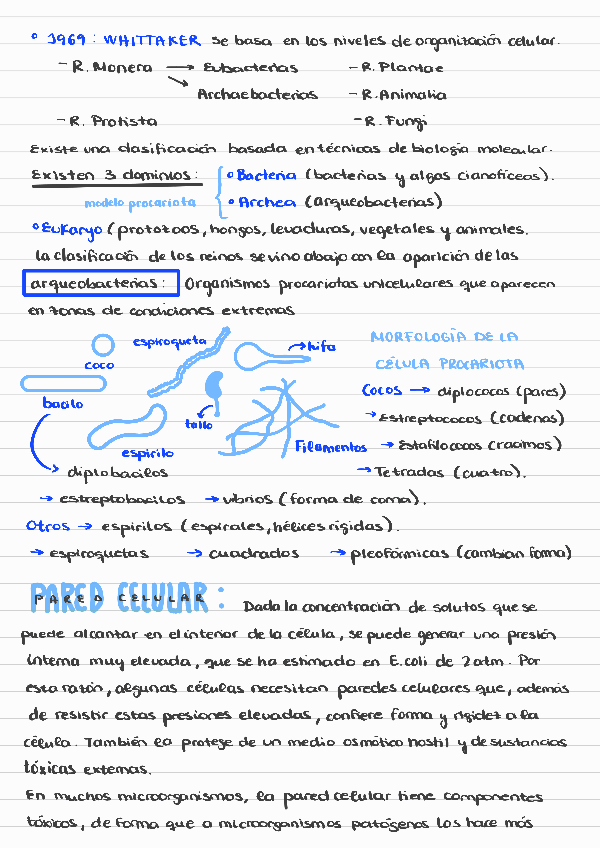 ° 1969: WHITTAKER se basa en los niveles de organización celular.
- R. Monera → Eubacterias - R. Plantae
→ Archaebacterias - R. Animalia
- R. Protista - R. Fungi
Existe una clasificación basada en técnicas de biología molecular.
Existen 3 dominios: ° Bacteria (bacterias y algas cianofíceas).
modelo procariota ° Archea (arqueobacterias)
° Eukaryo (protozoos, hongos, levaduras, vegetales y animales.
la clasificación de los reinos se vino abajo con la aparición de las
arqueobacterias: Organismos procariotas unicelulares que aparecen
en zonas de condiciones extremas
espiroqueta → hifa MORFOLOGÍA DE LA
coco CÉLULA PROCARIOTA
Cocos → diplococos (pares)
bacilo tallo → Estreptococos (cadenas)
espirilo Filamentos → Estafilococos (racimos)
→ diplobacilos → Tetradas (cuatro).
→ estreptobacilos → vibrios (forma de coma).
Otros → espirilos (espirales, hélices rígidas).
→ espiroquetas → cuadrados → pleofórmicas (cambian forma)
PARED CELULAR: Dada la concentración de solutos que se
puede alcantar en el interior de la célula, se puede generar una presión
interna muy elevada, que se ha estimado en E.coli de 2 atm. Por
esta razón, algunas células necesitan paredes celulares que, además
de resistir estas presiones elevadas, confiere forma y rigidez a la
célula. También la protege de un medio osmótico hostil y de sustancias
tóxicas externas.
En muchos microorganismos, la pared celular tiene componentes
tóxicos, de forma que a microorganismos patógenos los hace más